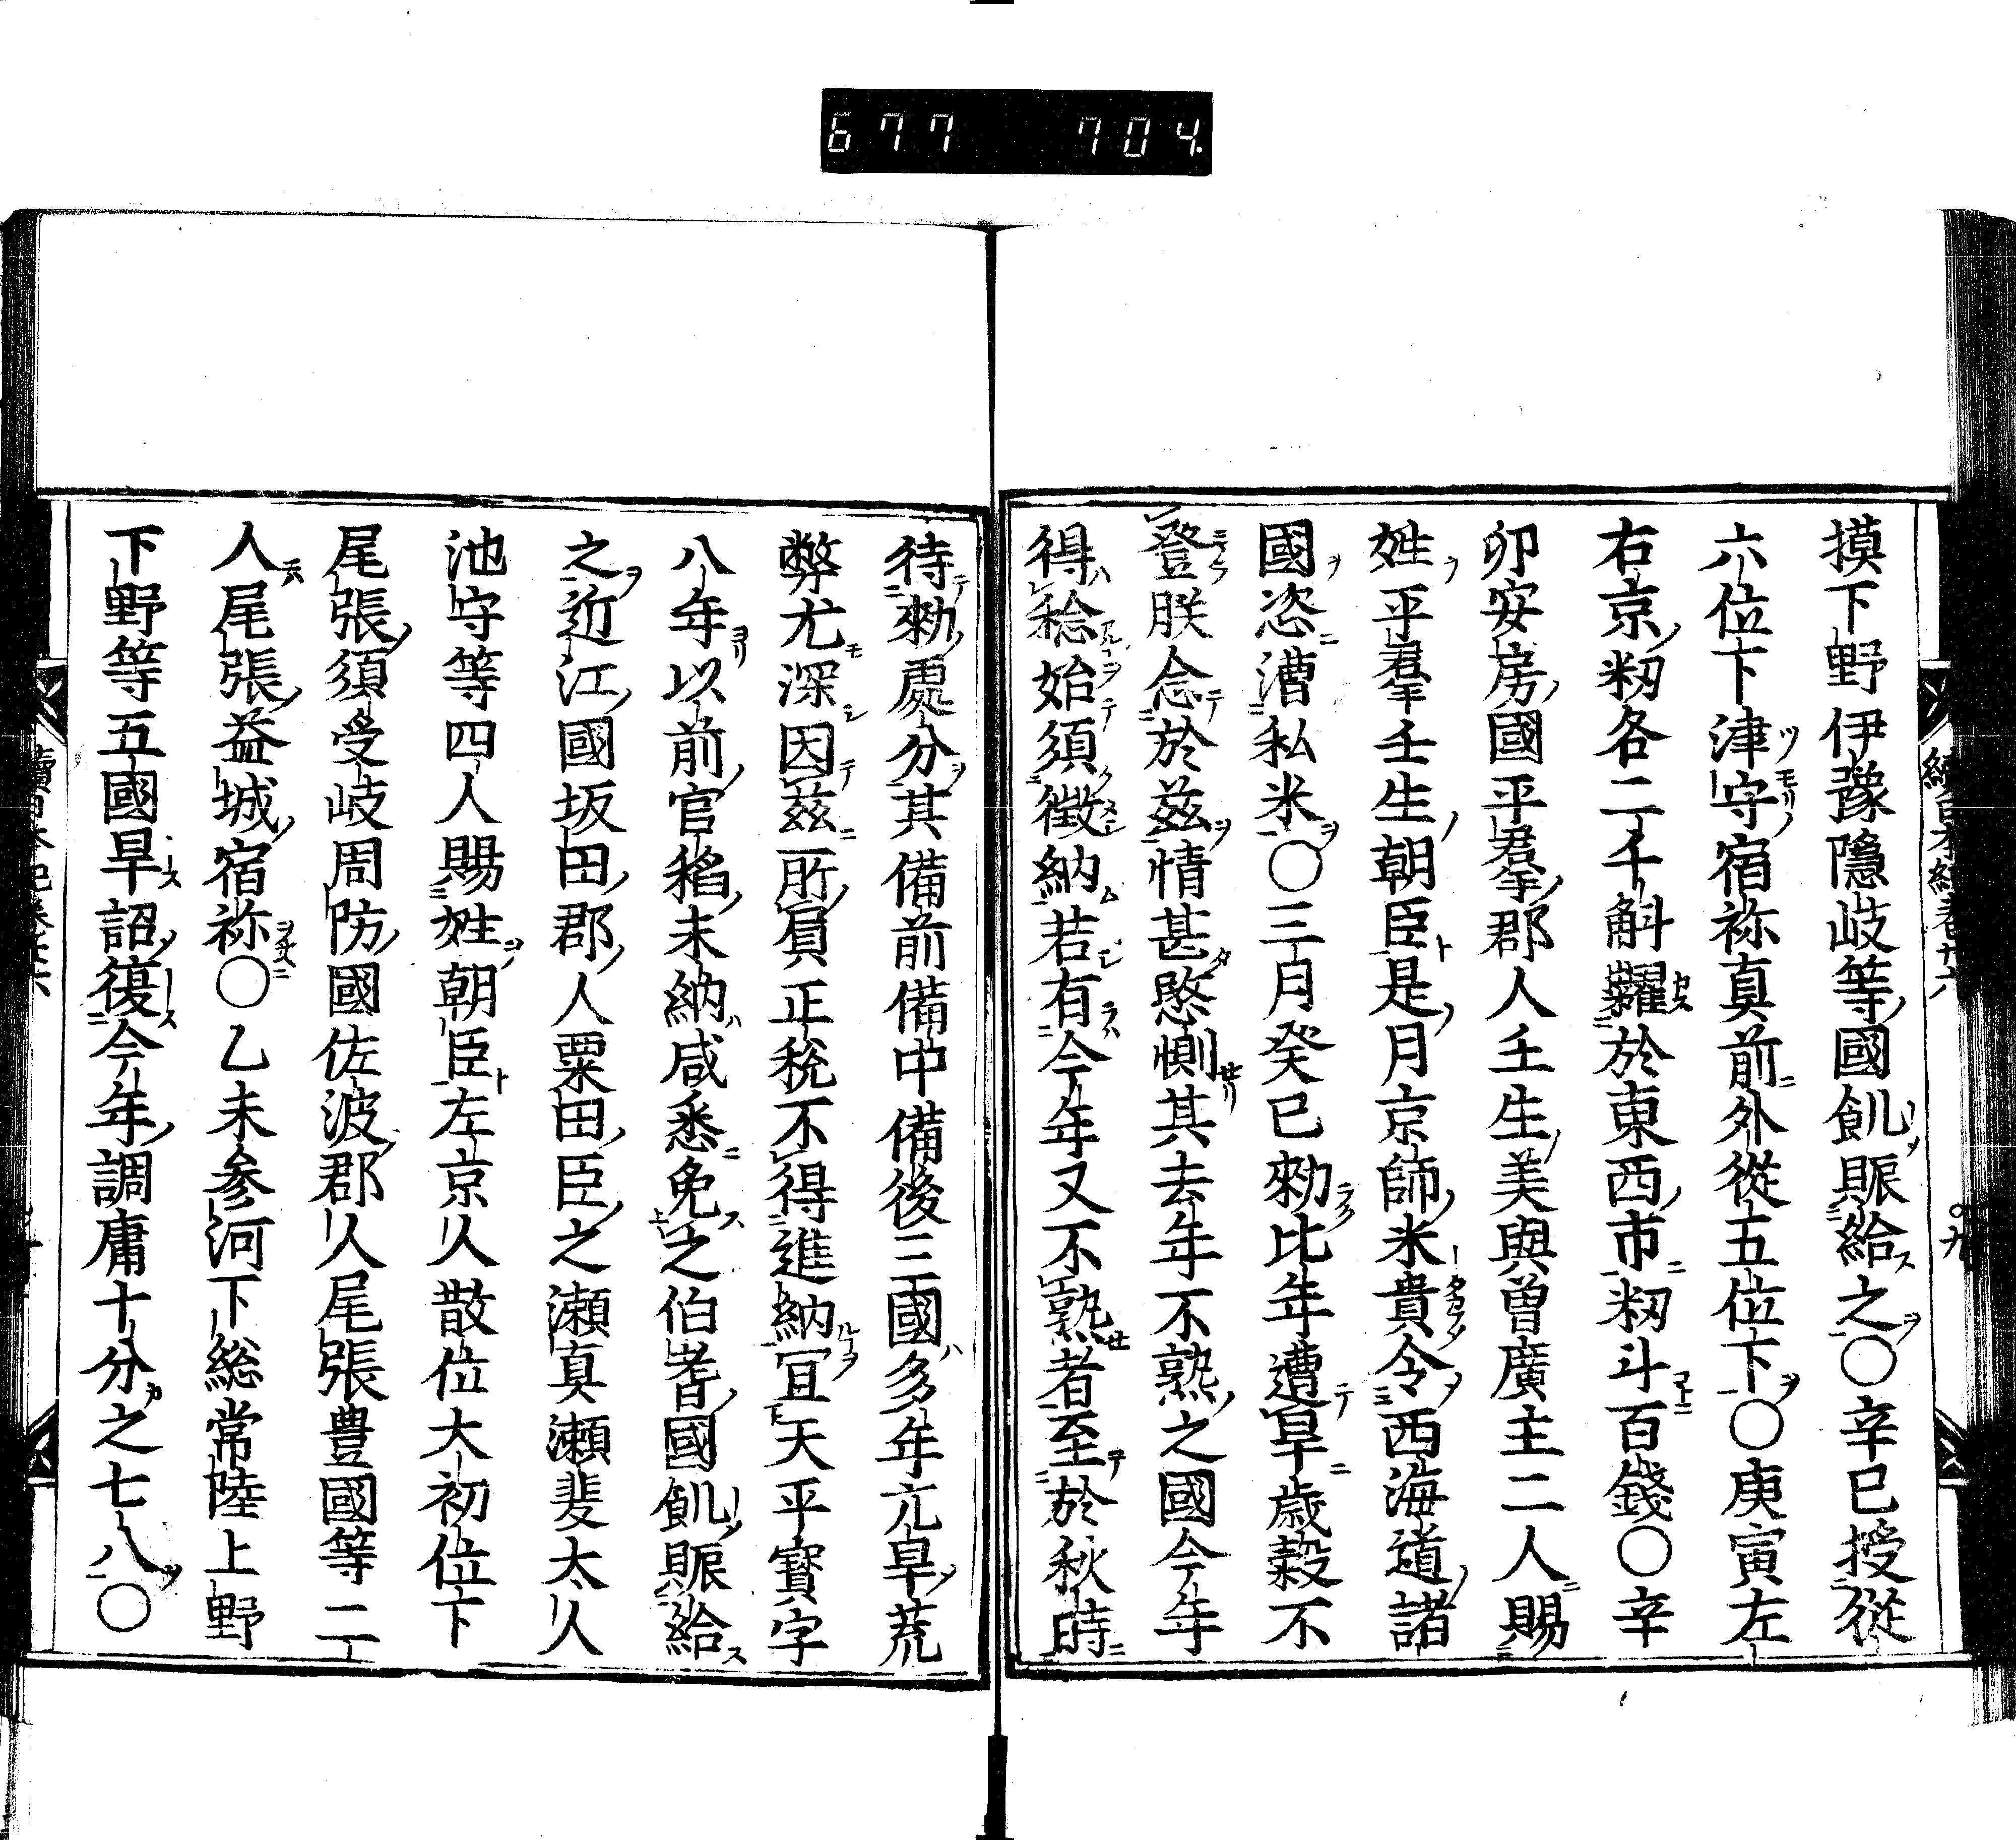 677 704.
摸下野伊豫隱岐等國飢賑給之〇辛巳授從
六位下津守宿祢真前外從五位下〇庚寅左
右京籾各二千斛糶於東西市籾斗百錢〇辛
卯安房國平羣郡人壬生美與曽廣主二人賜
姓平羣壬生朝臣是月京師米貴令西海道諸
國恣漕私米〇三月癸巳勑比年遭旱歳穀不
登朕念於兹情甚愍惻其去年不熟之國今年
得稔始須徴納若有今年又不熟者至於秋時
待勑處分其備前備中備後三國多年亢旱荒
弊尤深因兹所負正税不得進納宜天平寳字
八年以前官稻未納咸悉免之伯耆國飢賑給
之近江國坂田郡人粟田臣之瀬真瀬斐太人
池守等四人賜姓朝臣左京人散位大初位下
尾張須受岐周防國佐波郡人尾張豊國等二
人尾張益城宿祢〇乙未参河下総常陸上野
下野等五國旱詔復今年調庸十分之七八〇